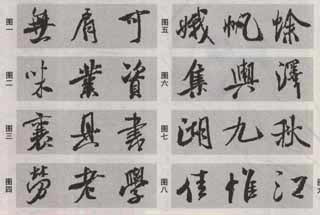 图一 無肩可
图二 味業資
图三 襄具書
图四 勞老學
图五 娥帆
图六 集澤
图七 湖九秋
图八 佳惟江